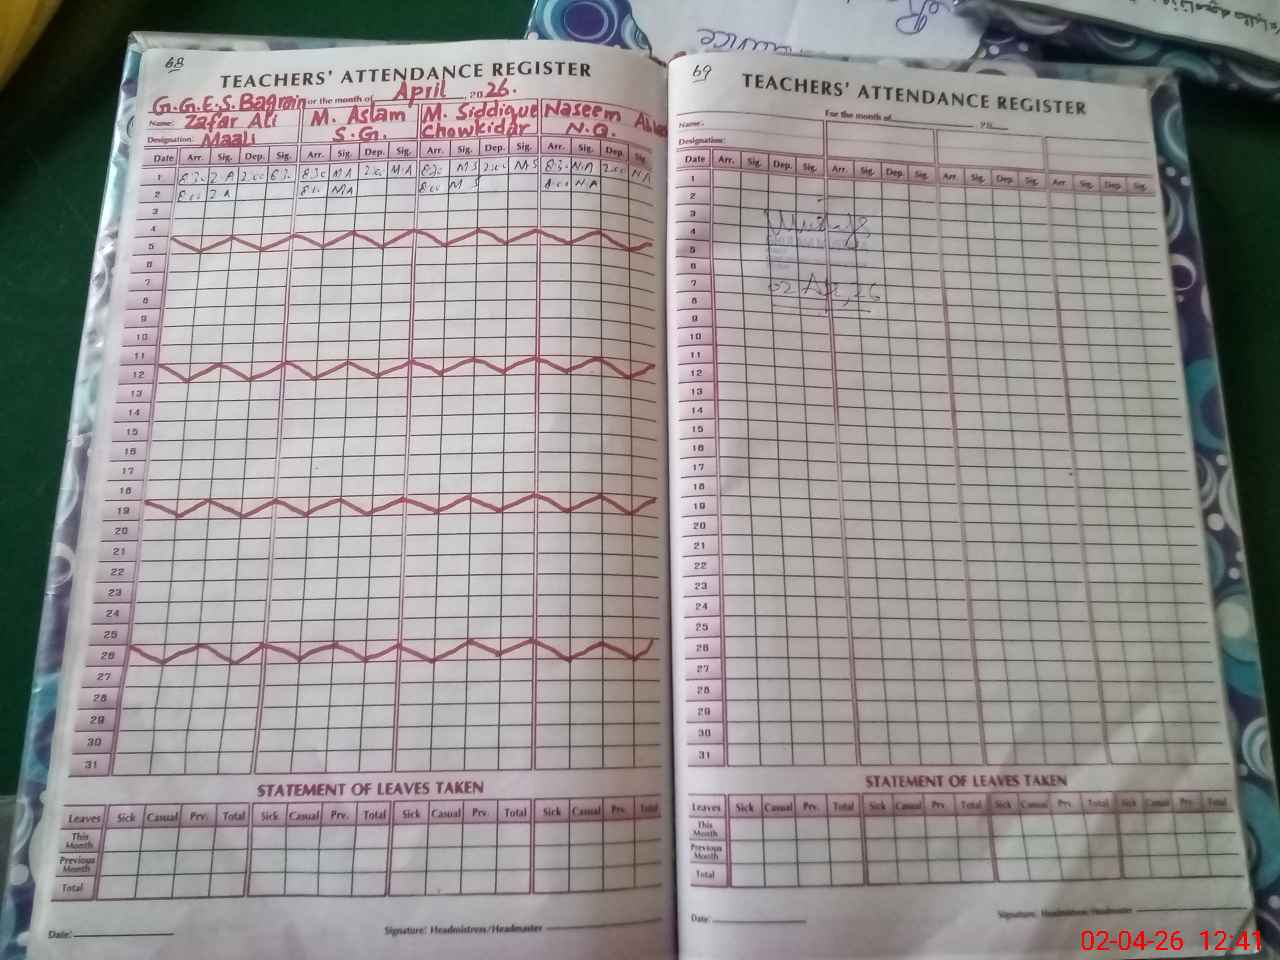 68
TEACHERS' ATTENDANCE REGISTER
G.G.E.S. Bagrain For the month of April, 2026.
Name: Zafar Ali M. Aslam M. Siddique Naseem
Designation: Maali S.G. Chowkidar N.Q.
Date Arr. Sig. Dep. Sig. Arr. Sig. Dep. Sig. Arr. Sig. Dep. Sig. Arr. Sig. Dep. Sig.
1 8:30 Z A 2:00 8:30 M A 2:00 M A 8:30 M S 2:00 M S 8:30 N A 2:00 N A
2 8:00 Z A 8:00 M A 8:00 M S 8:00 N A
3
4
5
6
7
8
9
10
11
12
13
14
15
16
17
18
19
20
21
22
23
24
25
26
27
28
29
30
31
STATEMENT OF LEAVES TAKEN
Leaves Sick Casual Prv. Total Sick Casual Prv. Total Sick Casual Prv. Total Sick Casual Prv. Total
This Month
Previous Month
Total
Date: Signature: Headmistress/Headmaster
69
TEACHERS' ATTENDANCE REGISTER
For the month of , 20
Name:
Designation:
Date Arr. Sig. Dep. Sig. Arr. Sig. Dep. Sig. Arr. Sig. Dep. Sig. Arr. Sig. Dep. Sig.
1
2
3
4
5
6
7
02 Apr, 26
8
9
10
11
12
13
14
15
16
17
18
19
20
21
22
23
24
25
26
27
28
29
30
31
STATEMENT OF LEAVES TAKEN
Leaves Sick Casual Prv. Total Sick Casual Prv. Total Sick Casual Prv. Total Sick Casual Prv. Total
This Month
Previous Month
Total
Date: Signature: Headmistress/Headmaster
02-04-26 12:41